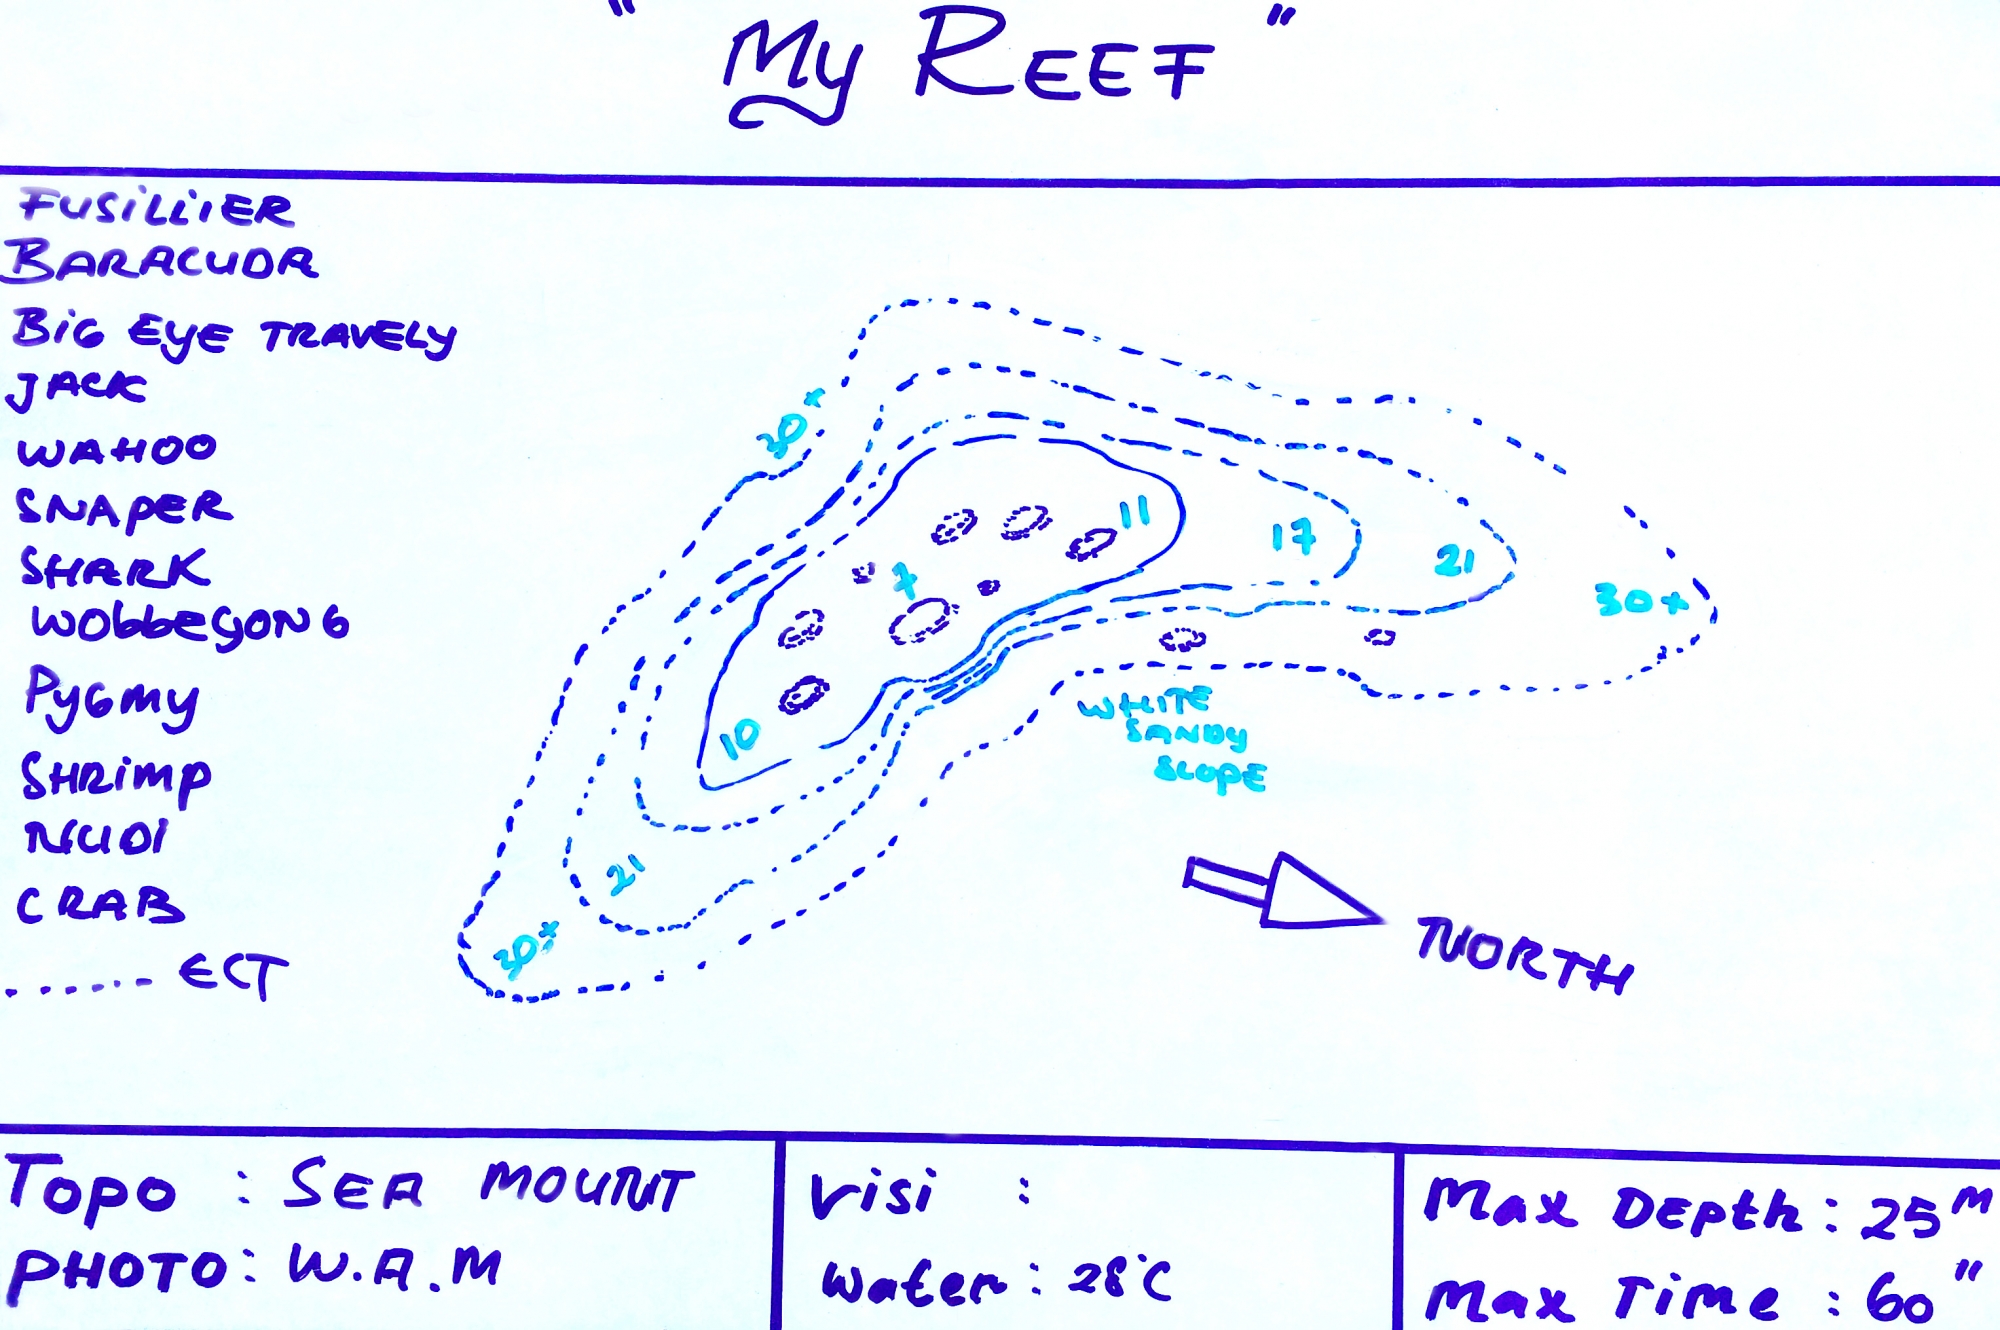 "My REEF"
FUSiLLiER
BARACUDA
BiG EyE TRAVELY
JACK
WAHOO
SNAPER
SHARK
WObbEGONG
PyGmy
SHRimp
NUDI
CRAB
....... ECT
30+
11
17
21
30+
7
10
WHITE
SANDY
SLOPE
21
30+
NORTH
Topo : SEA MOUNT
PHOTO : W.A.M
Visi :
Water : 28°C
Max DEpth : 25M
Max Time : 60"